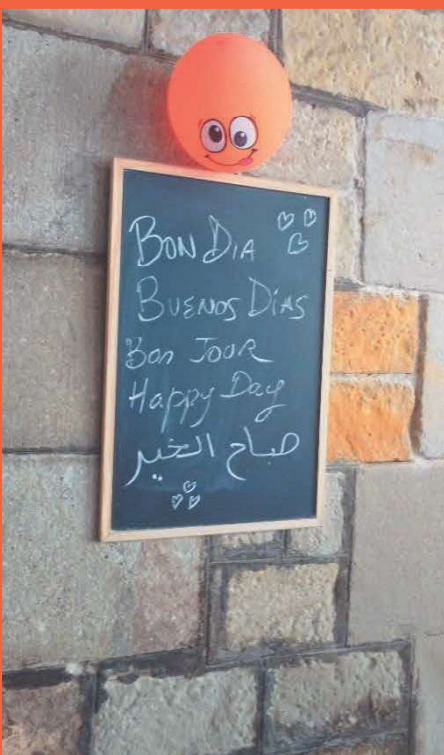 BON DIA
BUENOS DÍAS
Bon JOUR
Happy Day
صباح الخير